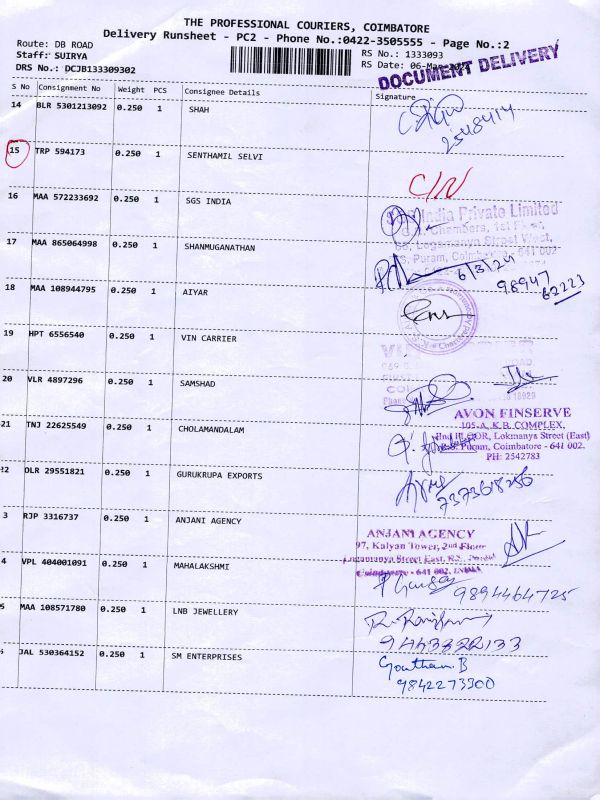 THE PROFESSIONAL COURIERS, COIMBATORE
Delivery Runsheet - PC2 - Phone No.:0422-3505555 - Page No.:2
Route: DB ROAD
Staff: SUIRYA
DRS No.: DCJB133309302
RS No.: 1333093
RS Date: 06-Ma
DOCUMENT DELIVERY
S No Consignment No Weight PCS Consignee Details Signature
14 BLR 5301213092 0.250 1 SHAH
2548414
15 TRP 594173 0.250 1 SENTHAMIL SELVI
C/N
16 MAA 572233692 0.250 1 SGS INDIA
India Private Limited
Chambers, 1st Floor,
Logamanya Street West,
Puram, Coimbatore - 641 002
17 MAA 865064998 0.250 1 SHANMUGANATHAN
6/3/24
98947
62223
18 MAA 108944795 0.250 1 AIYAR
19 HPT 6556540 0.250 1 VIN CARRIER
20 VLR 4897296 0.250 1 SAMSHAD
21 TNJ 22625549 0.250 1 CHOLAMANDALAM
AVON FINSERVE
105-A, K.B. COMPLEX,
IInd FLOOR, Lokmanya Street (East)
R.S. Puram, Coimbatore - 641 002.
PH: 2542783
22 DLR 29551821 0.250 1 GURUKRUPA EXPORTS
3 RJP 3316737 0.250 1 ANJANI AGENCY
ANJANI AGENCY
97, Kalyan Tower, 2nd Floor
Logamanya Street East, R.S. Puram
Coimbatore - 641 002, INDIA
4 VPL 404001091 0.250 1 MAHALAKSHMI
9894464725
5 MAA 108571780 0.250 1 LNB JEWELLERY
JAL 530364152 0.250 1 SM ENTERPRISES
Goutham.B
9842273300